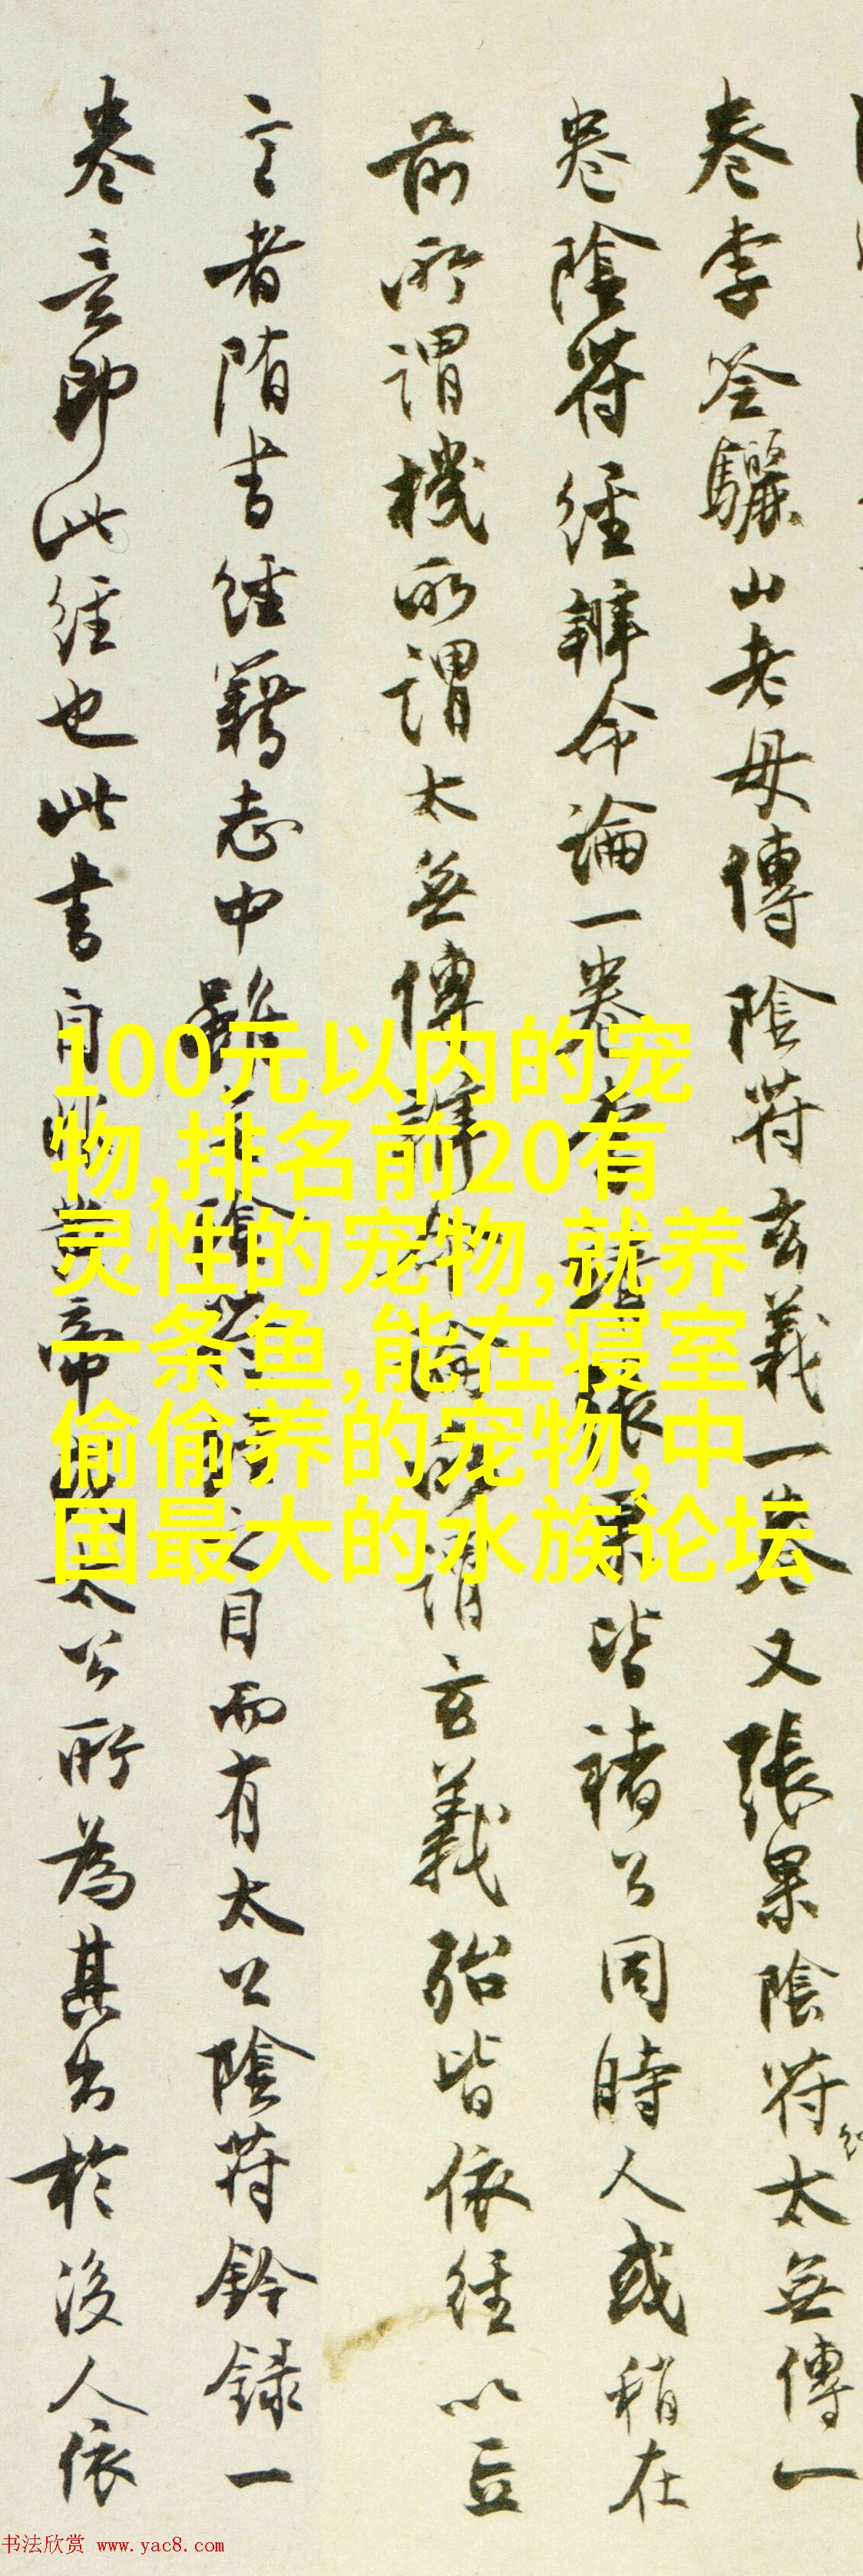 卷李筌驪山老母傳陰符玄義一卷又張果陰符太無傳一
卷陰符經辨命論一卷
張果皆褚公同時人或稍在
前所謂機所謂太無傳
論所謂玄義殆皆依經以立
言者隋書經籍志中雖
陰符
之目而有太公陰符鈐録一
卷意即此經也此書自
黃帝
太公所為其出於後人依
100元以内的宠
物,排名前20有
灵性的宠物,就养
一条鱼,能在寝室
偷偷养的宠物,中
国最大的水族论坛
书法欣赏 www.yac8.com